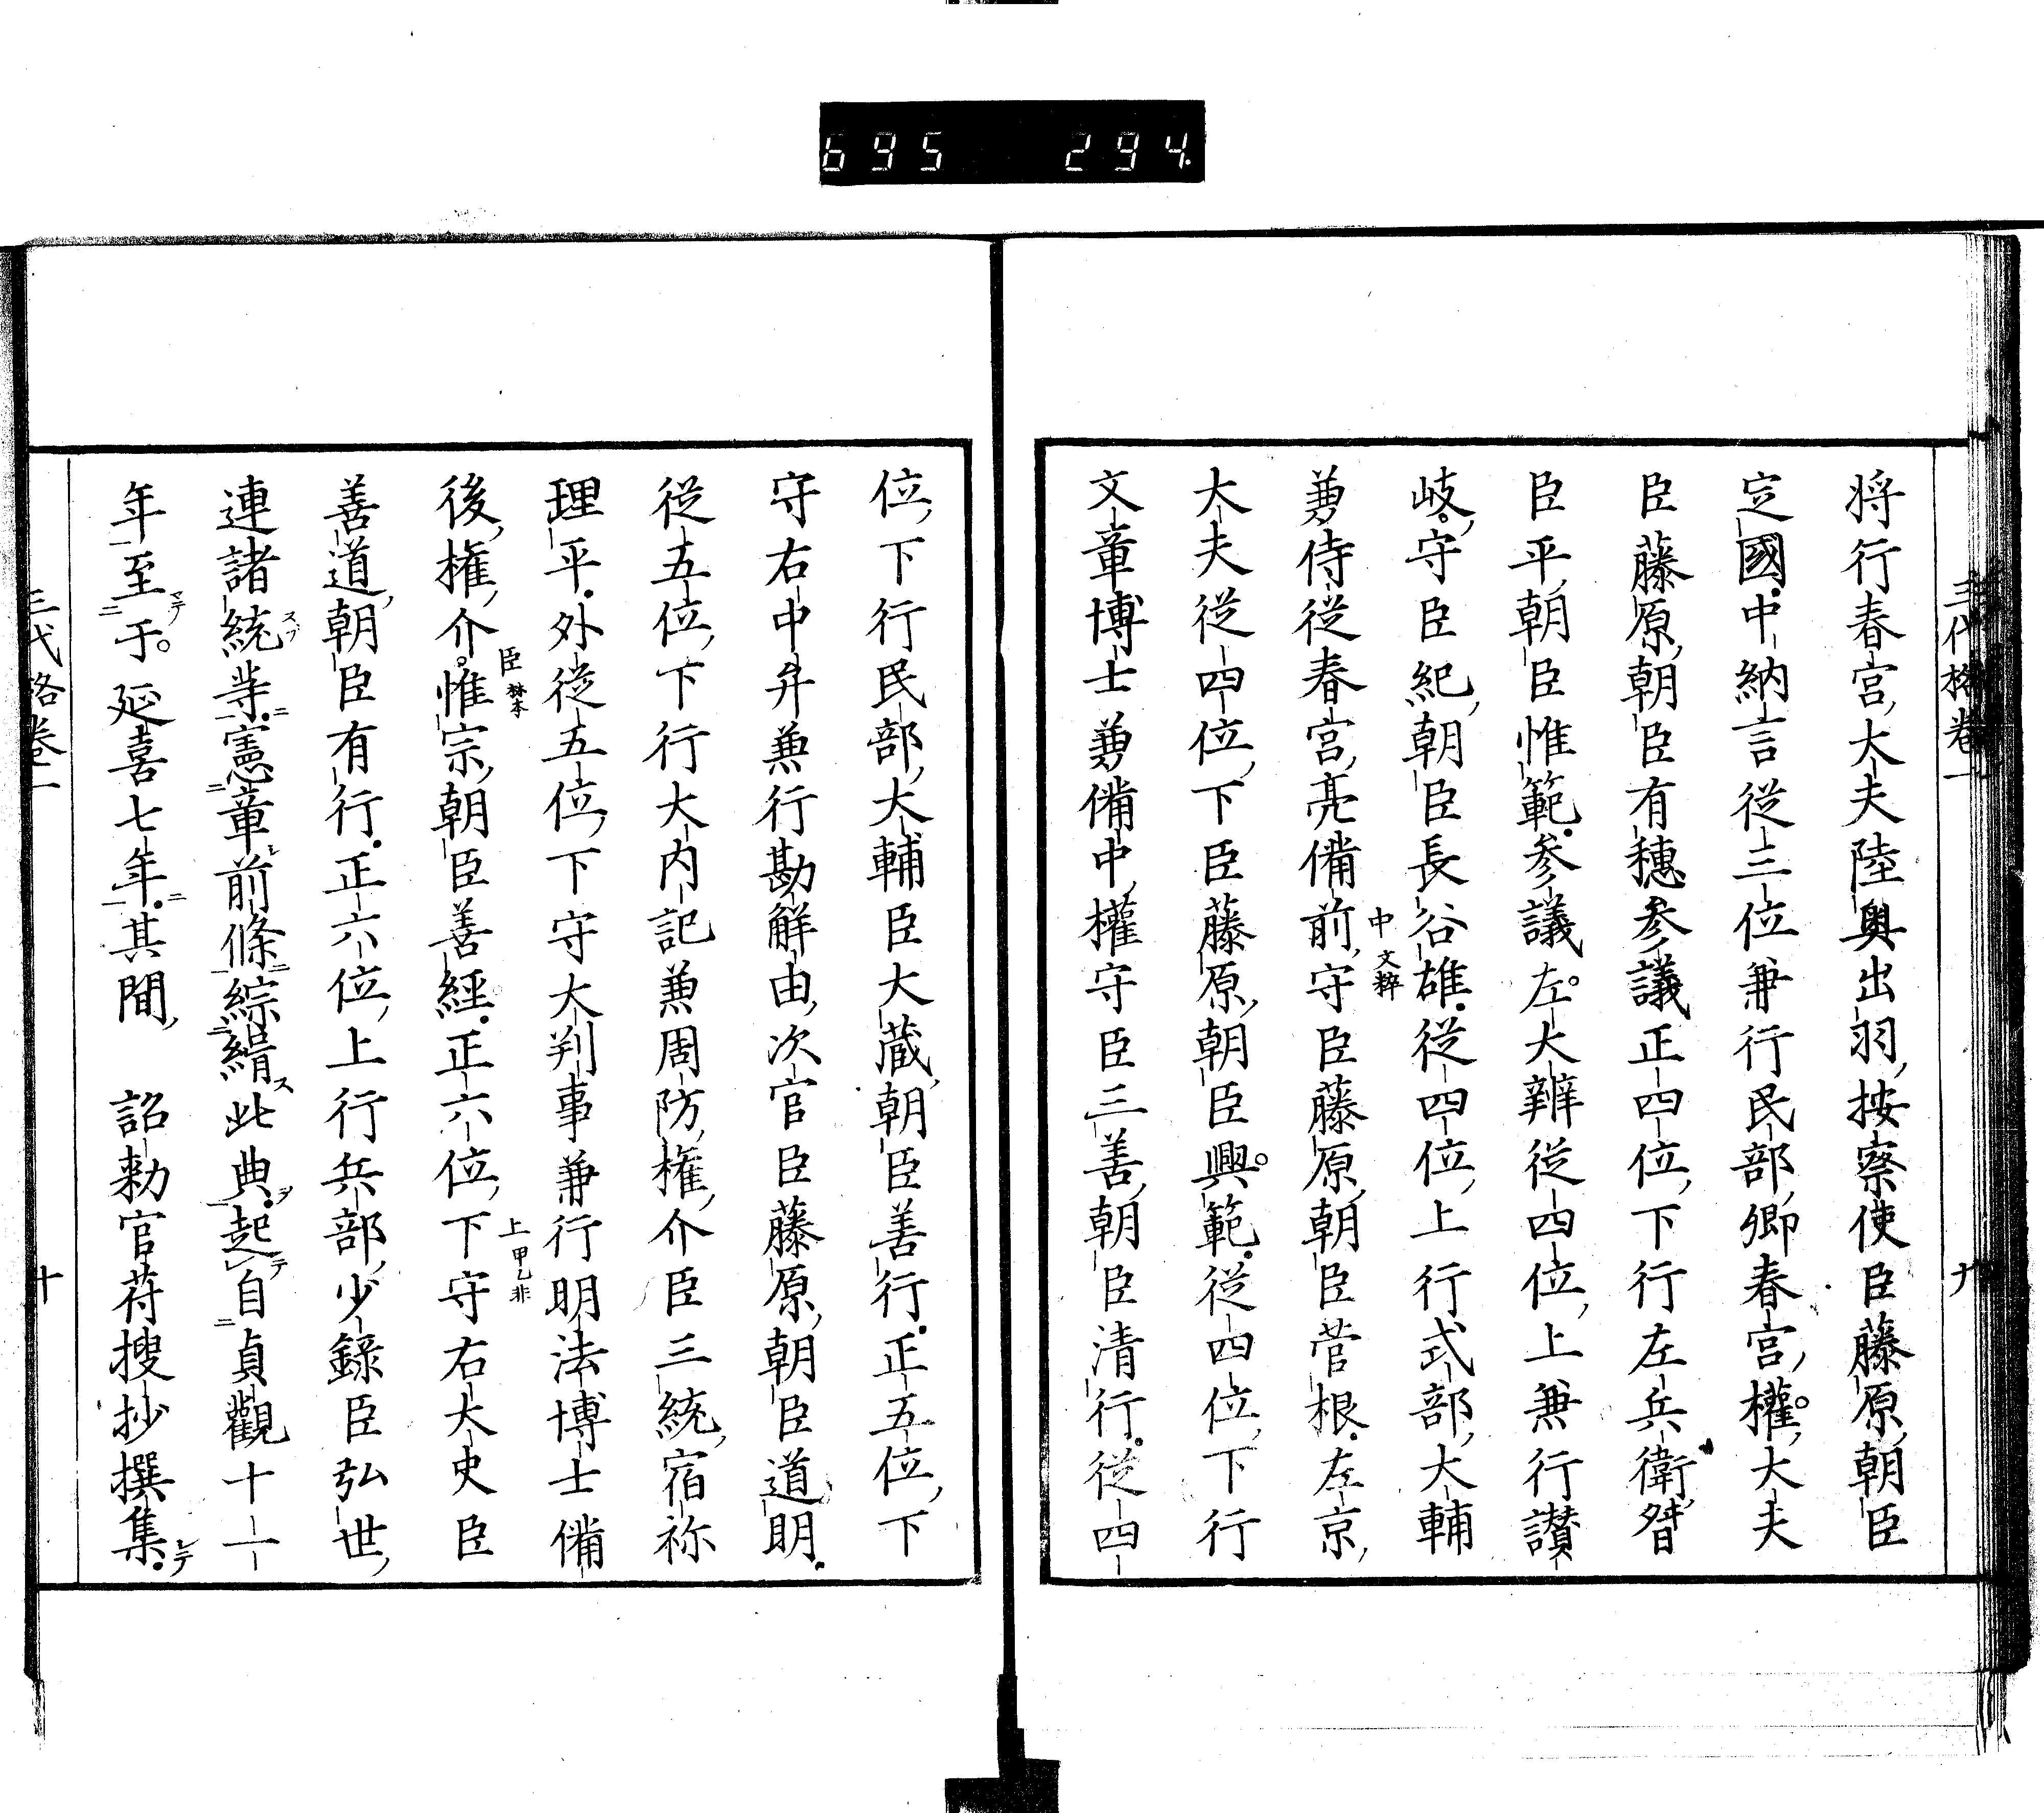 695 294.
三代格卷一 九
将行春宮大夫陸奥出羽按察使臣藤原朝臣
定國中納言従三位兼行民部卿春宮權大夫
臣藤原朝臣有穗参議正四位下行左兵衛督
臣平朝臣惟範参議左大辨従四位上兼行讃
岐守臣紀朝臣長谷雄従四位上行式部大輔
兼侍従春宮亮備前守臣藤原朝臣菅根左京
中文粹
大夫従四位下臣藤原朝臣興範従四位下行
文章博士兼備中權守臣三善朝臣清行従四
位下行民部大輔臣大蔵朝臣善行正五位下
守右中弁兼行勘解由次官臣藤原朝臣道明
従五位下行大内記兼周防権介臣三統宿祢
理平外従五位下守大判事兼行明法博士備
臣林本 上甲乙非
後権介惟宗朝臣善經正六位下守右大史臣
善道朝臣有行正六位上行兵部少録臣弘世
連諸統等憲章前條綜緝此典起自貞觀十一
年至于延喜七年其間 詔勅官符搜抄撰集
三代格卷一 十